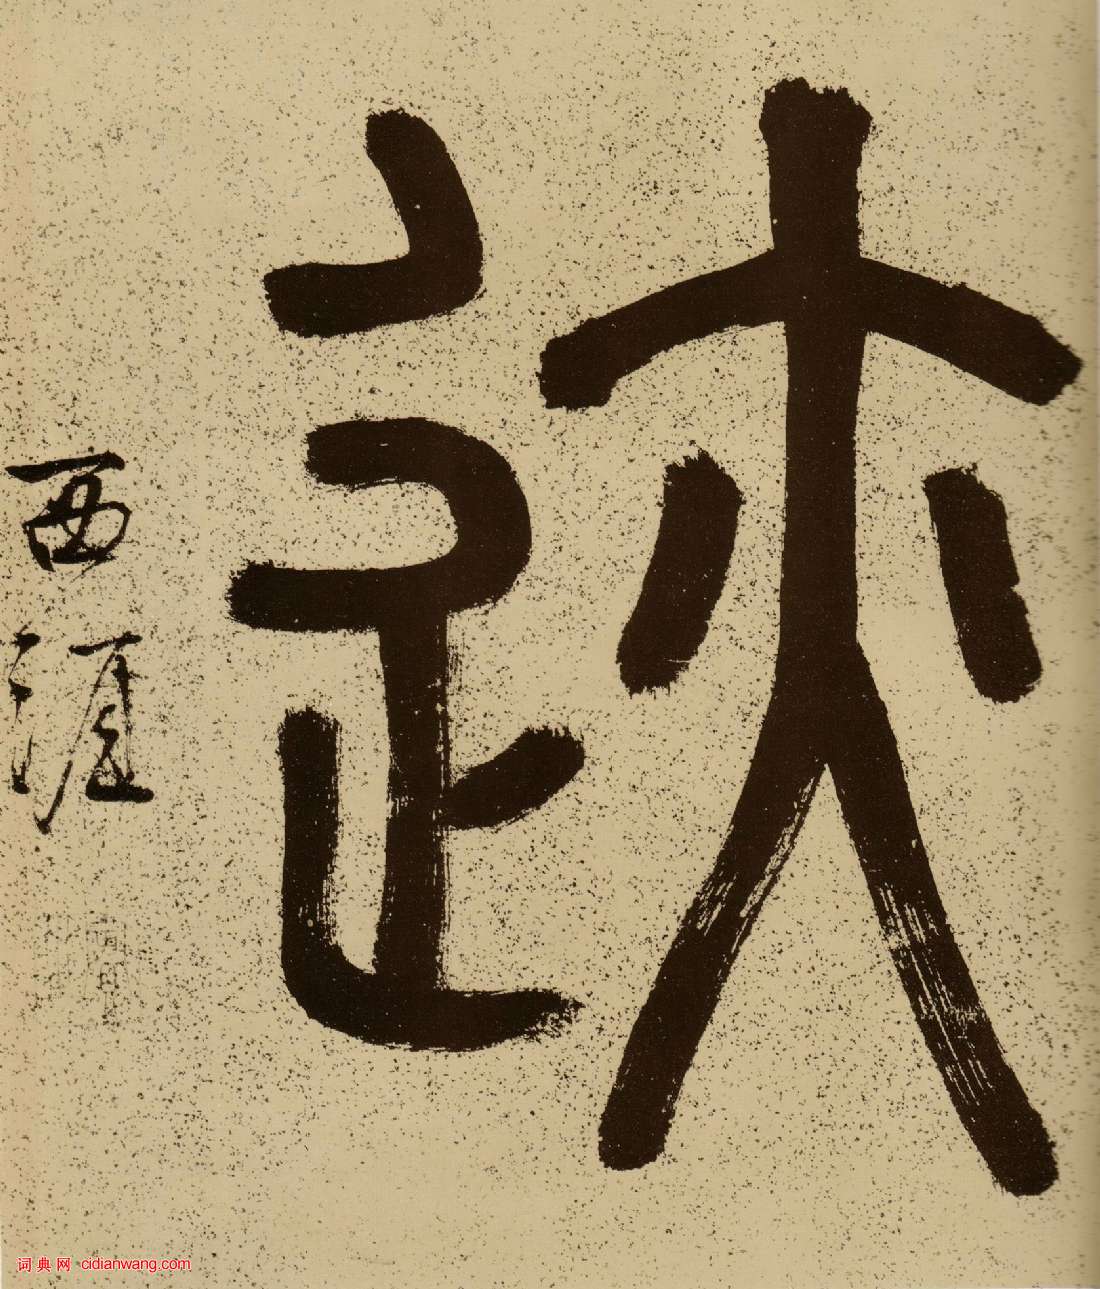 迹
西涯
词典网 cidianwang.com